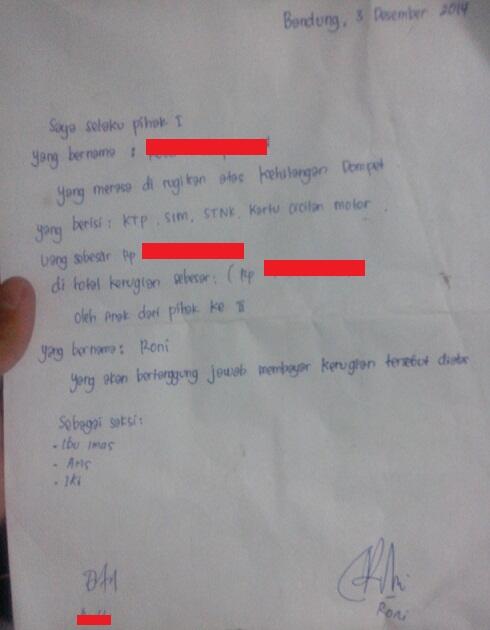 Bandung, 3 Desember 2014
Saya selaku pihak I
yang bernama :
yang merasa di rugikan atas kehilangan Dompet
yang berisi : KTP, SIM, STNK, Kartu cicilan motor
Uang sebesar Rp
di total kerugian sebesar : ( Rp
oleh Anak dari pihak ke II
yang bernama : Roni
yang akan bertanggung jawab membayar kerugian tersebut diatas
Sebagai saksi :
- Ibu Imas
-
- Iki
Roni